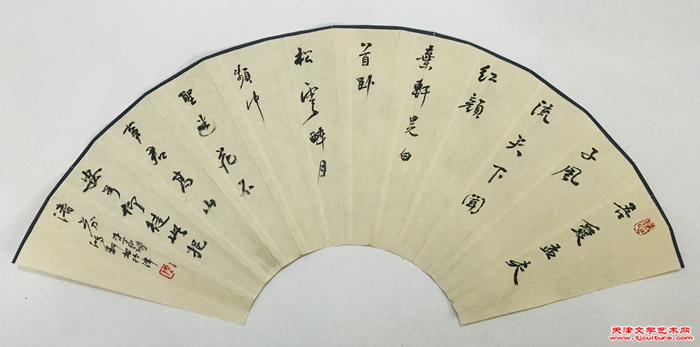 吾愛孟夫
子風
流天下聞
紅顏
棄軒冕白
首卧
松雲醉月
頻中
聖迷花不
事君高山
安可仰徒此挹
清芬
天津文学艺术网
www.tjculture.com